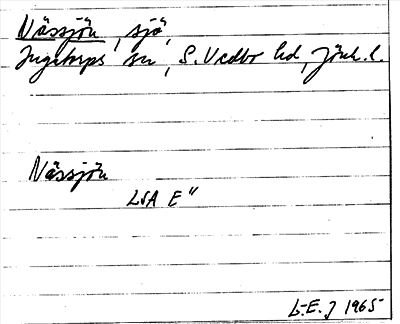 Nässjön, sjö,
Ingatorps sn, S. Vedbo hd, Jönk. l.
Nässjön
LSA E"
L-E. J 1965